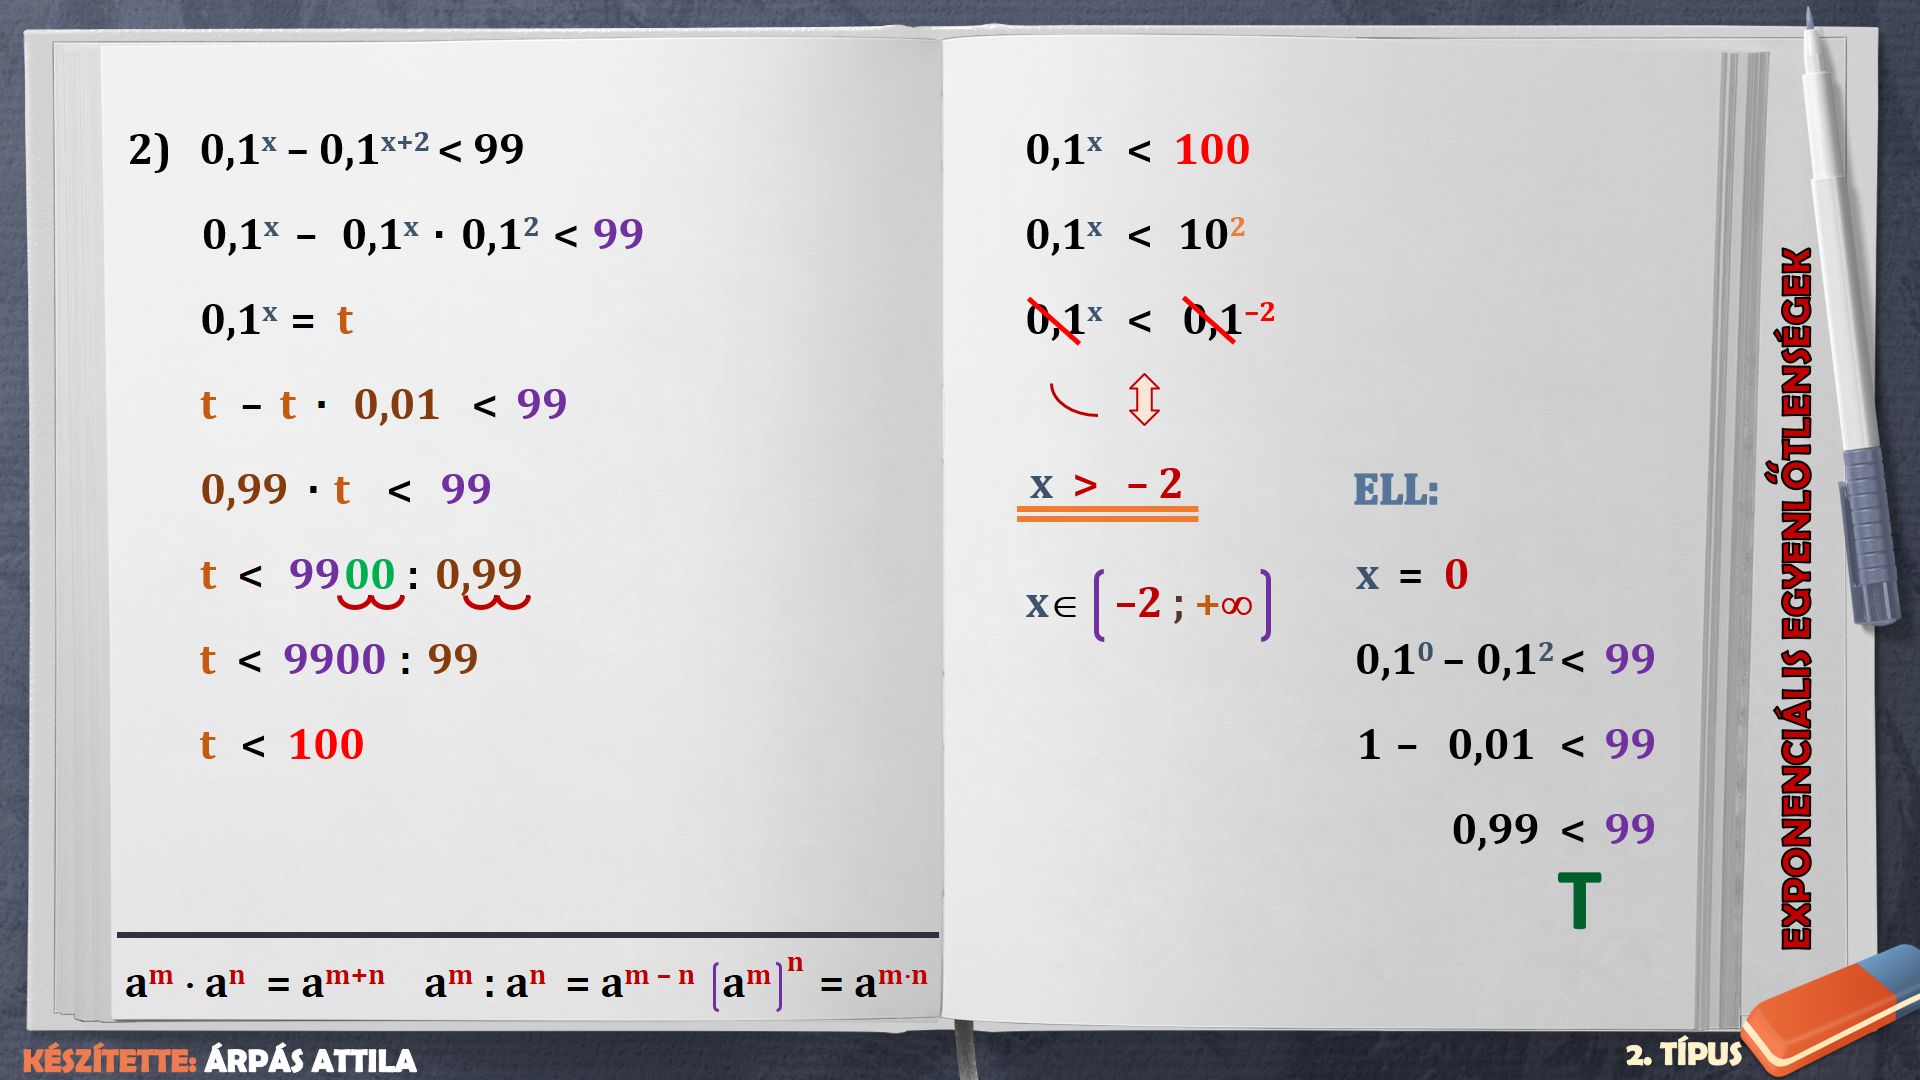 2) 0,1ˣ – 0,1ˣ⁺² < 99
0,1ˣ – 0,1ˣ · 0,1² < 99
0,1ˣ = t
t – t · 0,01 < 99
0,99 · t < 99
t < 9900 : 0,99
t < 9900 : 99
t < 100
aᵐ · aⁿ = aᵐ⁺ⁿ aᵐ : aⁿ = aᵐ ⁻ ⁿ (aᵐ)ⁿ = aᵐ·ⁿ
0,1ˣ < 100
0,1ˣ < 10²
0,1ˣ < 0,1⁻²
x > – 2
x∈ (–2 ; +∞)
ELL:
x = 0
0,1⁰ – 0,1² < 99
1 – 0,01 < 99
0,99 < 99
T
EXPONENCIÁLIS EGYENLŐTLENSÉGEK
KÉSZÍTETTE: ÁRPÁS ATTILA
2. TÍPUS